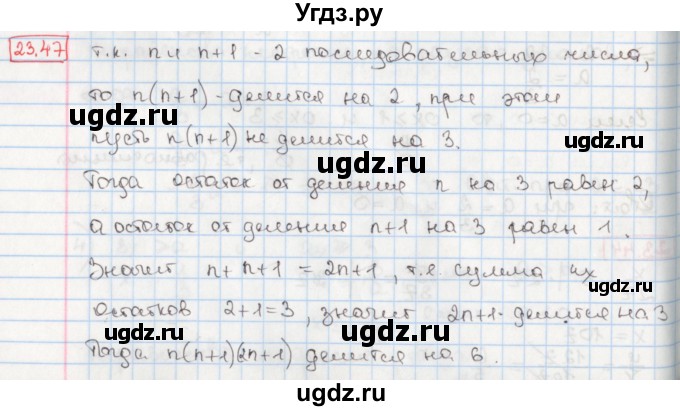 Угдз.ру
23.47 т.к. n и n+1 - 2 последовательных числа,
то n(n+1) - делится на 2, при этом
ugdz.ru ugdz.ru
пусть n(n+1) не делится на 3.
ugdz.ru
Тогда остаток от деления n на 3 равен 2,
ugdz.ru ugdz.ru
а остаток от деления n+1 на 3 равен 1.
ugdz.ru
Значит n+n+1 = 2n+1, т.е. сумма их
ugdz.ru ugdz.ru
остатков 2+1=3, значит 2n+1-делится на 3
ugdz.ru
Тогда n(n+1)(2n+1) делится на 6.
ugdz.ru ugdz.ru